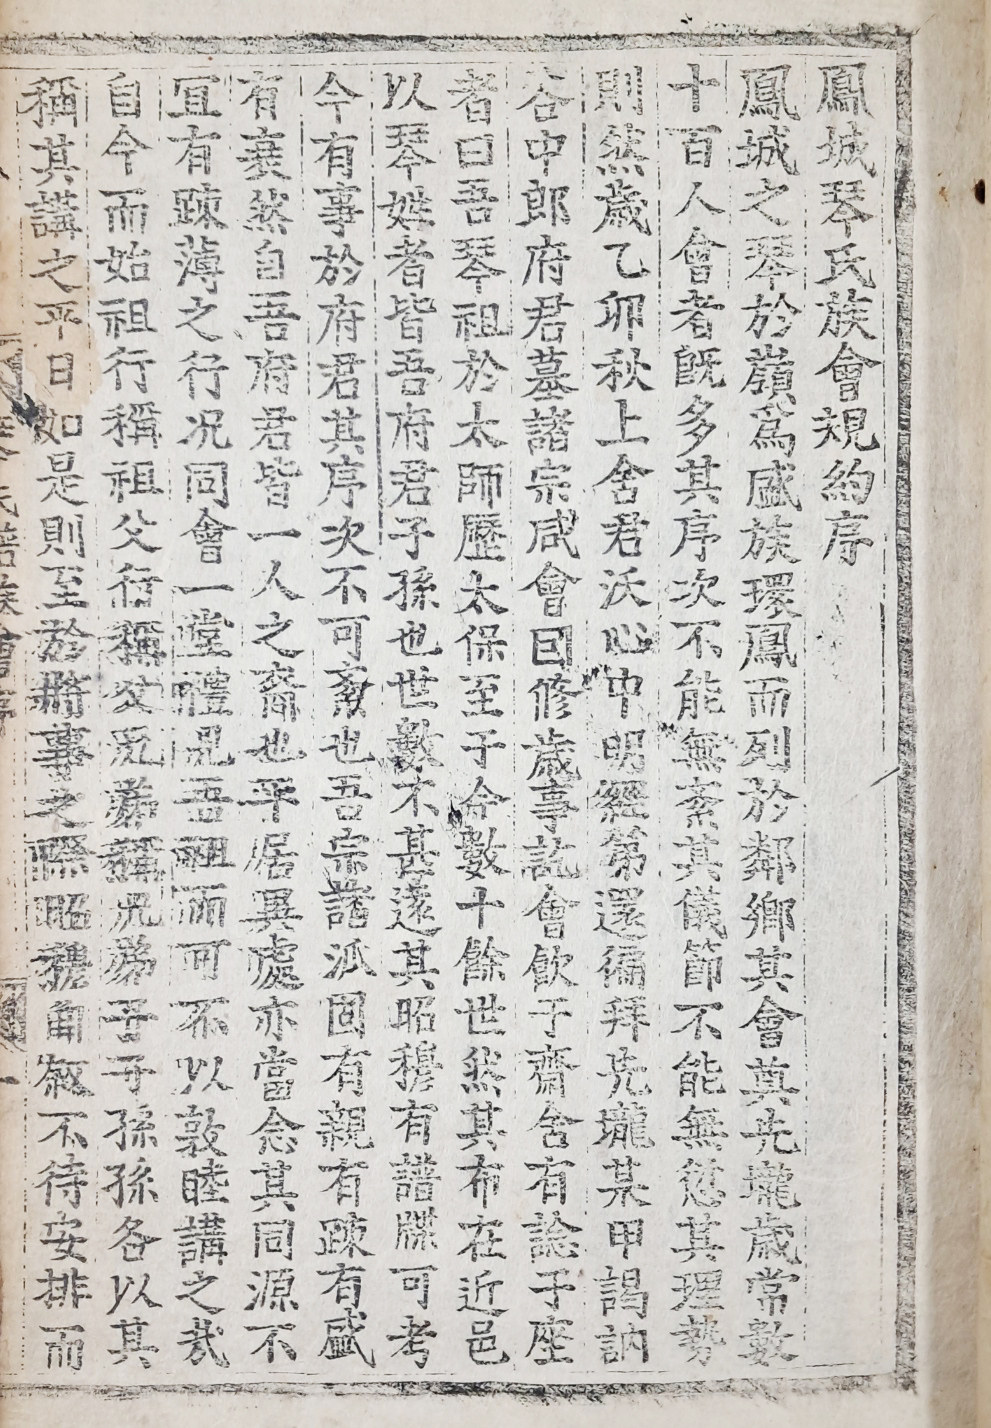 鳳城琴氏族會規約序
鳳城之琴於嶺爲盛族環鳳而列於鄰鄉其會奠先壠歲常數
十百人會者旣多其序次不能無紊其儀節不能無愆其理勢
則然歲乙卯秋上舍君沃心中明經第還徧拜先壠某甲謁訥
谷中郎府君墓諸宗咸會回修歲事訖會飮于齋舍有諗于座
者曰吾琴祖於太師歷太保至于今數十餘世然其布在近邑
以琴姓者皆吾府君子孫也世數不甚遠其昭穆有譜牒可考
今有事於府君其序次不可紊也吾宗諸派固有親有疎有盛
有衰然自吾府君皆一人之裔也平居異處亦當念其同源不
宜有疎薄之行况同會一堂禮見吾祖而可不以敦睦講之哉
自今而始祖行稱祖父行稱父兄弟稱兄弟子子孫孫各以其
稱其講之平日如是則至於將事之際昭穆角叙不待安排而